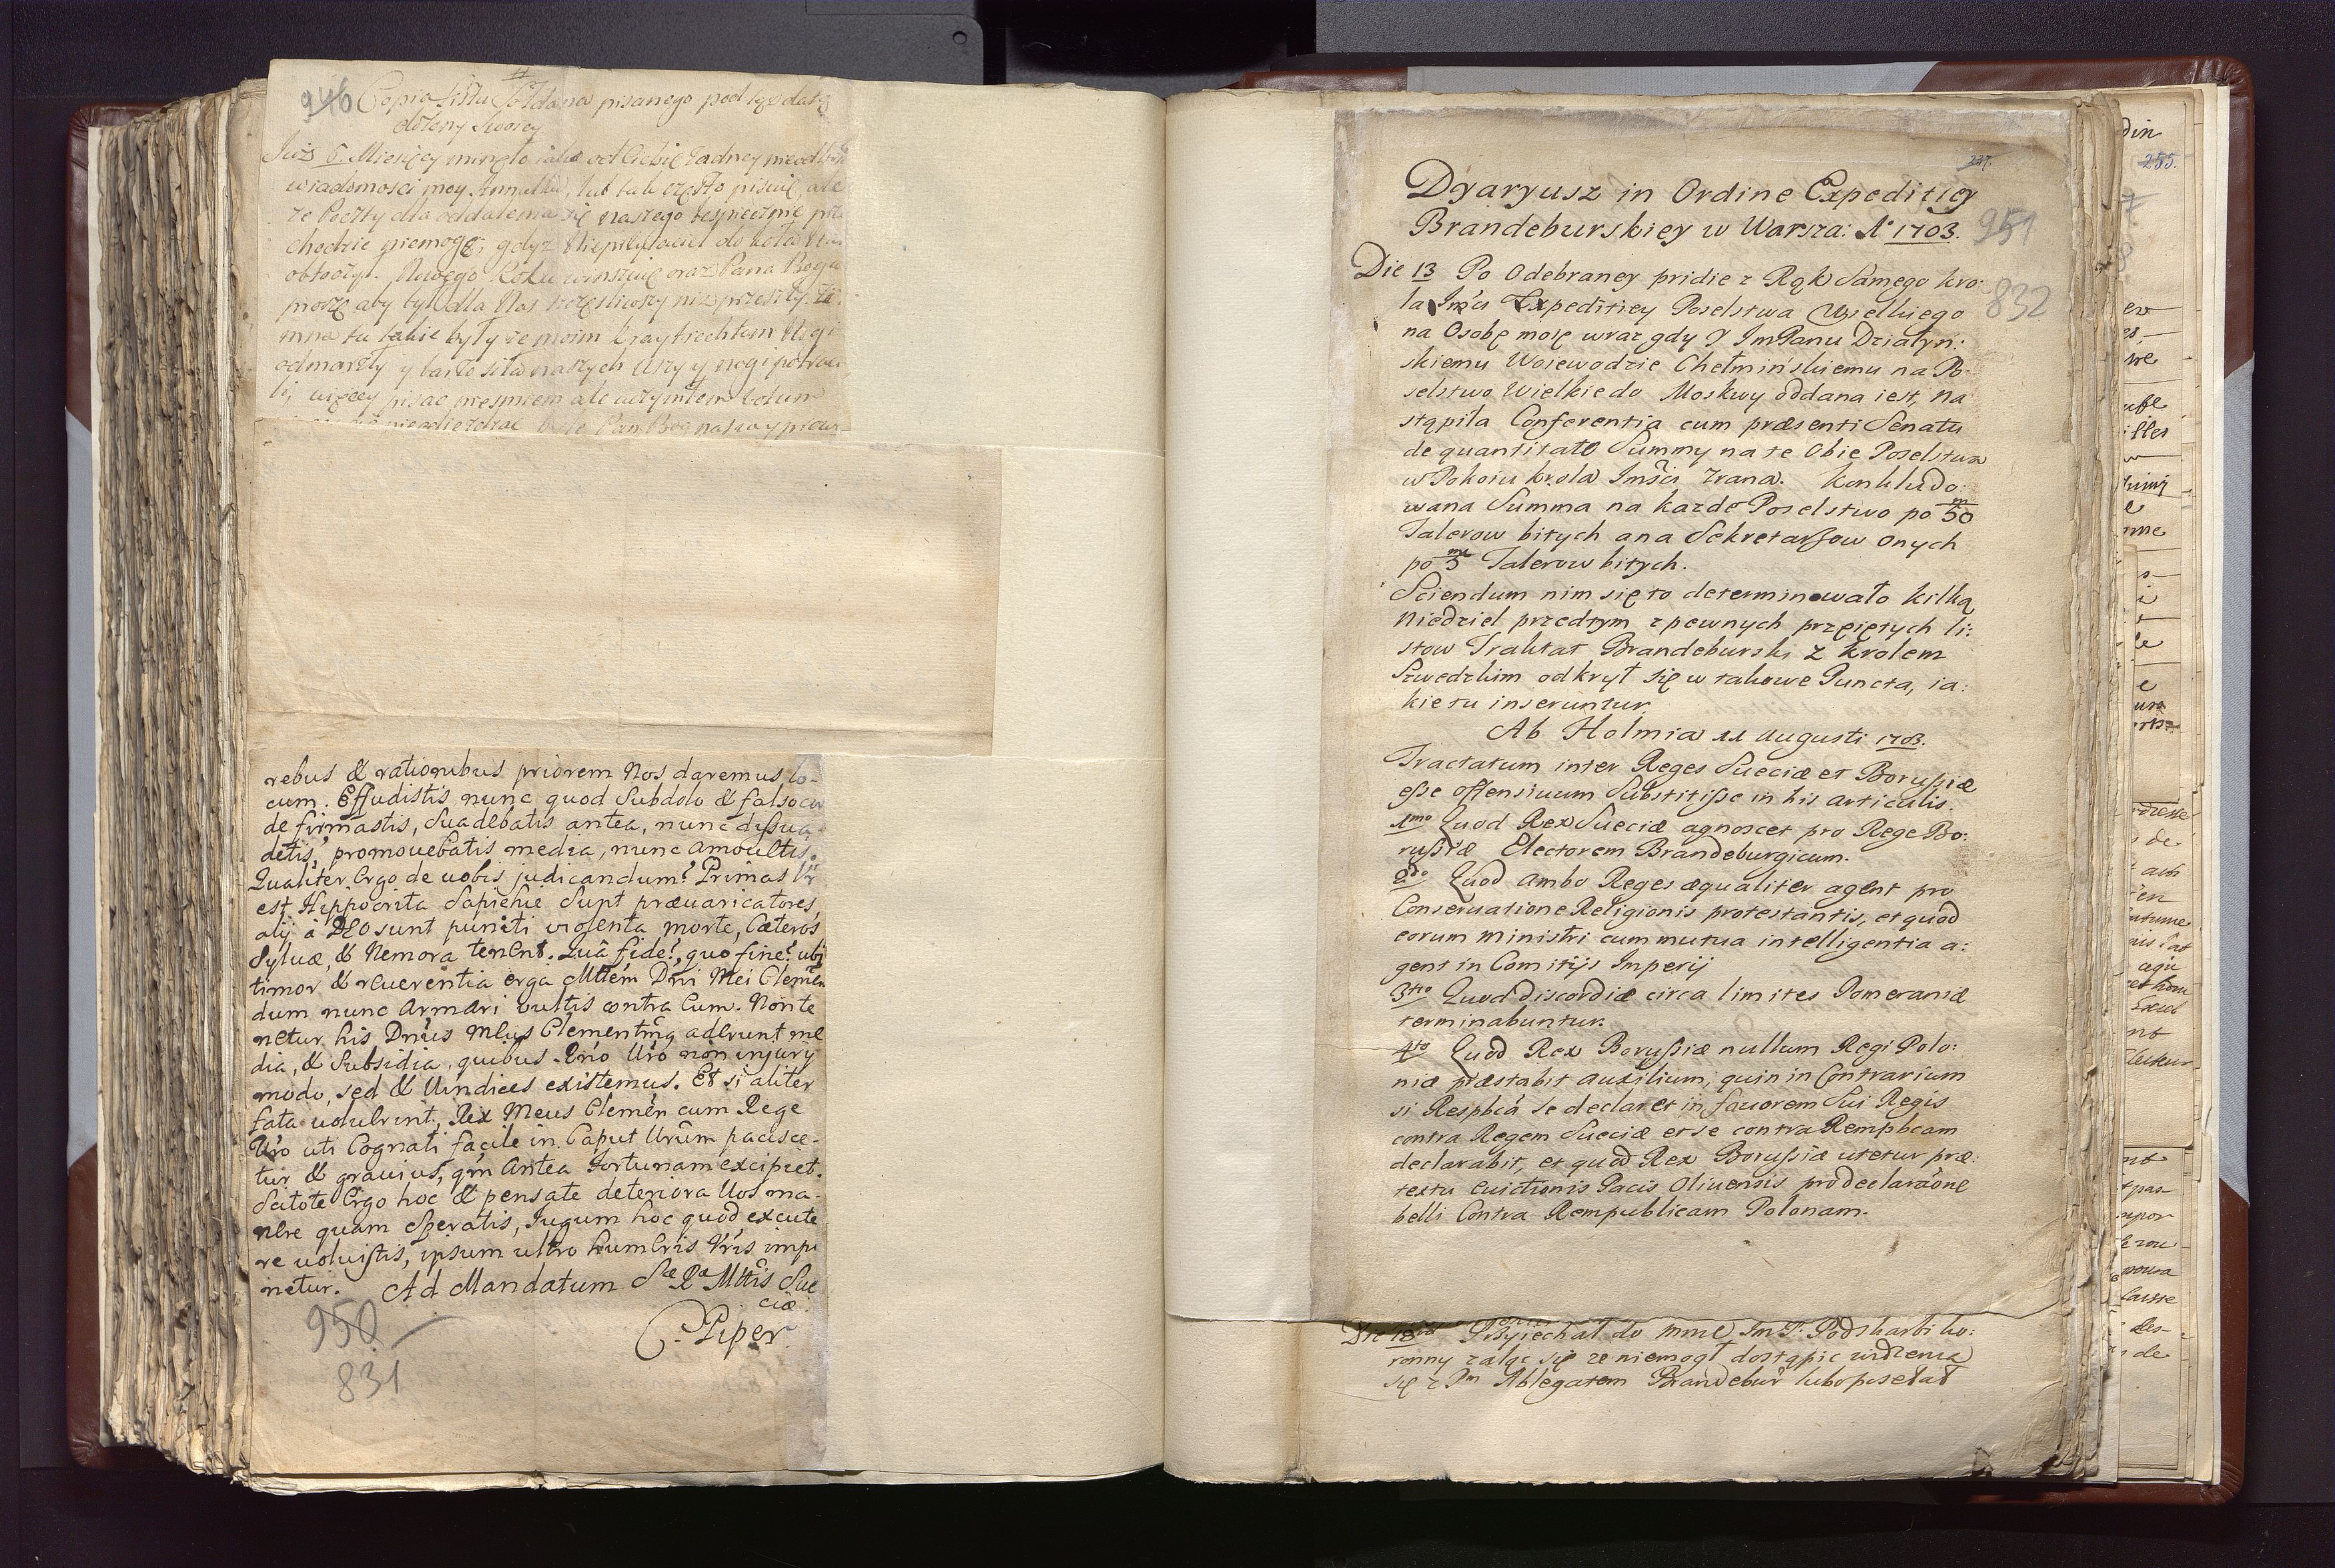 946 Copia Listu Soldana pisanego pod tęż datą
do Żony Swoiey
Już 6. Miesięcy mineło iako od Ciebie żadney nieod
wiadomosci moy Annulko, lub tak często pisuię, ale
że Poczty dla oddalenia się naszego bespiecznie prze
chodzic niemogą, gdyż Nieprzyiaciel do koła nas
obtoczył. Nowego Roku winszuię oraz Pana Boga
proszę aby był dla Nas szczęsliwszy niż przeszły. Zi
mna tu takie były że moim
odmarzły y barzo siła naszych Uszy y nogi potraci
li, więcey pisac niesmiem ale uczyniłem Votum
Pan Bog
rebus & rationibus priorem Nos daremus lo-
cum. Effudistis nunc quod Subdolo & falso co
de firmastis, Suadebatis antea, nunc dissua
detis, promovebatis media, nunc amovetis.
Qualiter Ergo de vobis judicandum? Primas Vr
est Hippocrita Sapiehie Sunt prævaricatores,
alij à DEO sunt puniti violenta morte, Cæteros
Sylvæ, & Nemora tenent. Quâ fide?, quo fine? ubi
timor & reverentia erga Mttem Dni Mei Clemen
dum nunc Armari vultis contra Eum. Non te
netur his Dnus Meus Clementmg aderunt me
dia, & Subsidia, quibus Vrio Uro non injurÿ
modo, sed & Vindices existemus. Et si aliter
fata voluerint, Rex Meus Clemen cum Rege
Vro uti Cognati facile in Caput Urum pacisce-
tur & gravius, qm Antea fortunam excipiet.
Scitote Ergo hoc & pensate deteriora Vos ma-
nere quam Speratis, Jugum hoc quod excute
re voluistis, ipsum ultro humeris Vris impo
netur. Ad Mandatum Sæ Ræ Mttis Sue
ciæ.
C. Piper
950
831
227.
Dyaryusz in Ordine Expeditiey
Brandeburskiey w Warsza: Ao 1703.
951
Die 13 Po Odebraney pridie z Rąk Samego kro:
832
la Imci Expeditiey Poselstwa Wielkiego
na Osobę moię wraz gdy y Im Panu Działyn:
skiemu Woiewodzie Chełminskiemu na Po-
selstwo Wielkie do Moskwy oddana iest, na
stąpiła Conferentia cum præsenti Senatu
de quantitate Summy na te Obie Poselstwa
w Pokoiu krola Imsci zrana. Konkludo:
wana Summa na kazde Poselstwo po 50 m
Talerow bitych a na Sekretarzow onych
po 5 m Talerow bitych.
Sciendum nim się to determinowało kilką
Niedziel przedtym z pewnych przęiętych li:
stow Traktat Brandeburski z krolem
Szwedzkim odkrył się w takowe Puncta, ia:
kie tu inseruntur.
Ab Holmia 11 Augusti 1703.
Tractatum inter Reges Sueciæ et Borussiæ
esse offensivum Substitisse in his articulis.
1mo Quod Rex Sueciæ agnoscet pro Rege Bo:
russiæ Electorem Brandeburgicum.
2do Quod ambo Reges æqualiter agent pro
Conservatione Religionis protestantis, et quod
eorum Ministri cum mutua intelligentia a:
gent in Comitijs Imperij
3tio Quod discordiæ circa limites Pomeraniæ
terminabuntur.
4to Quod Rex Borussiæ nullum Regi Polo:
niæ præstabit auxilium; quin in Contrarium
si Respbca se declaret in favorem Sui Regis
contra Regem Sueciæ et se contra Rempbcam
declarabit, et quod Rex Borussiæ utetur præ:
textu evictionis Pacis Olivensis pro declaraone
belli Contra Rempublicam Polonam.
Die Przyiechał do mnie Im P. Podskarbi ko:
ronny zaląc się ze niemogł dostąpic widzenia
się z Im Ablegatem Brandebur lubo posełał